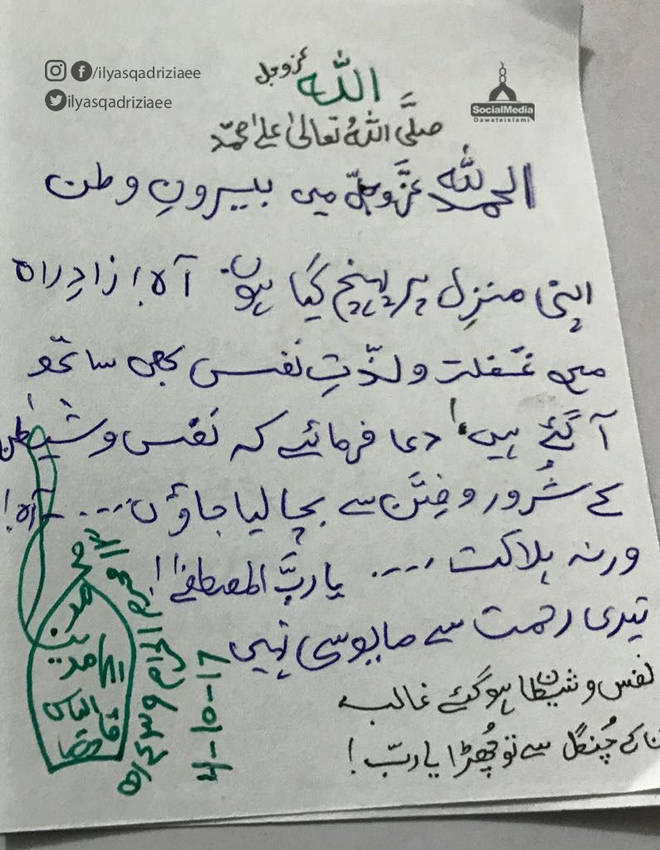 /ilyasqadriziaee
ilyasqadriziaee
SocialMedia
Dawateislami
اللہ عزوجل
صلَّی اللہُ تعالیٰ علیٰ محمّد
الحمدللہ عزّوجلّ میں بیرونِ وطن
اپنی منزل پر پہنچ گیا ہوں۔ آہ! زادِ راہ
میں غفلت و لذّتِ نَفس بھی ساتھ
آگئے ہیں، دعا فرمائیے کہ نَفْس و شیطٰن
کے شُرور و فِتَن سے بچا لیا جاؤں.... آہ!
ورنہ ہلاکت .... یاربَّ المصطفےٰ!
تیری رحمت سے مایوسی نہیں
نفس و شیطان ہو گئے غالب
ان کے چُنگل سے تو چُھڑا یا ربّ!
محرم الحرام
4-10-17